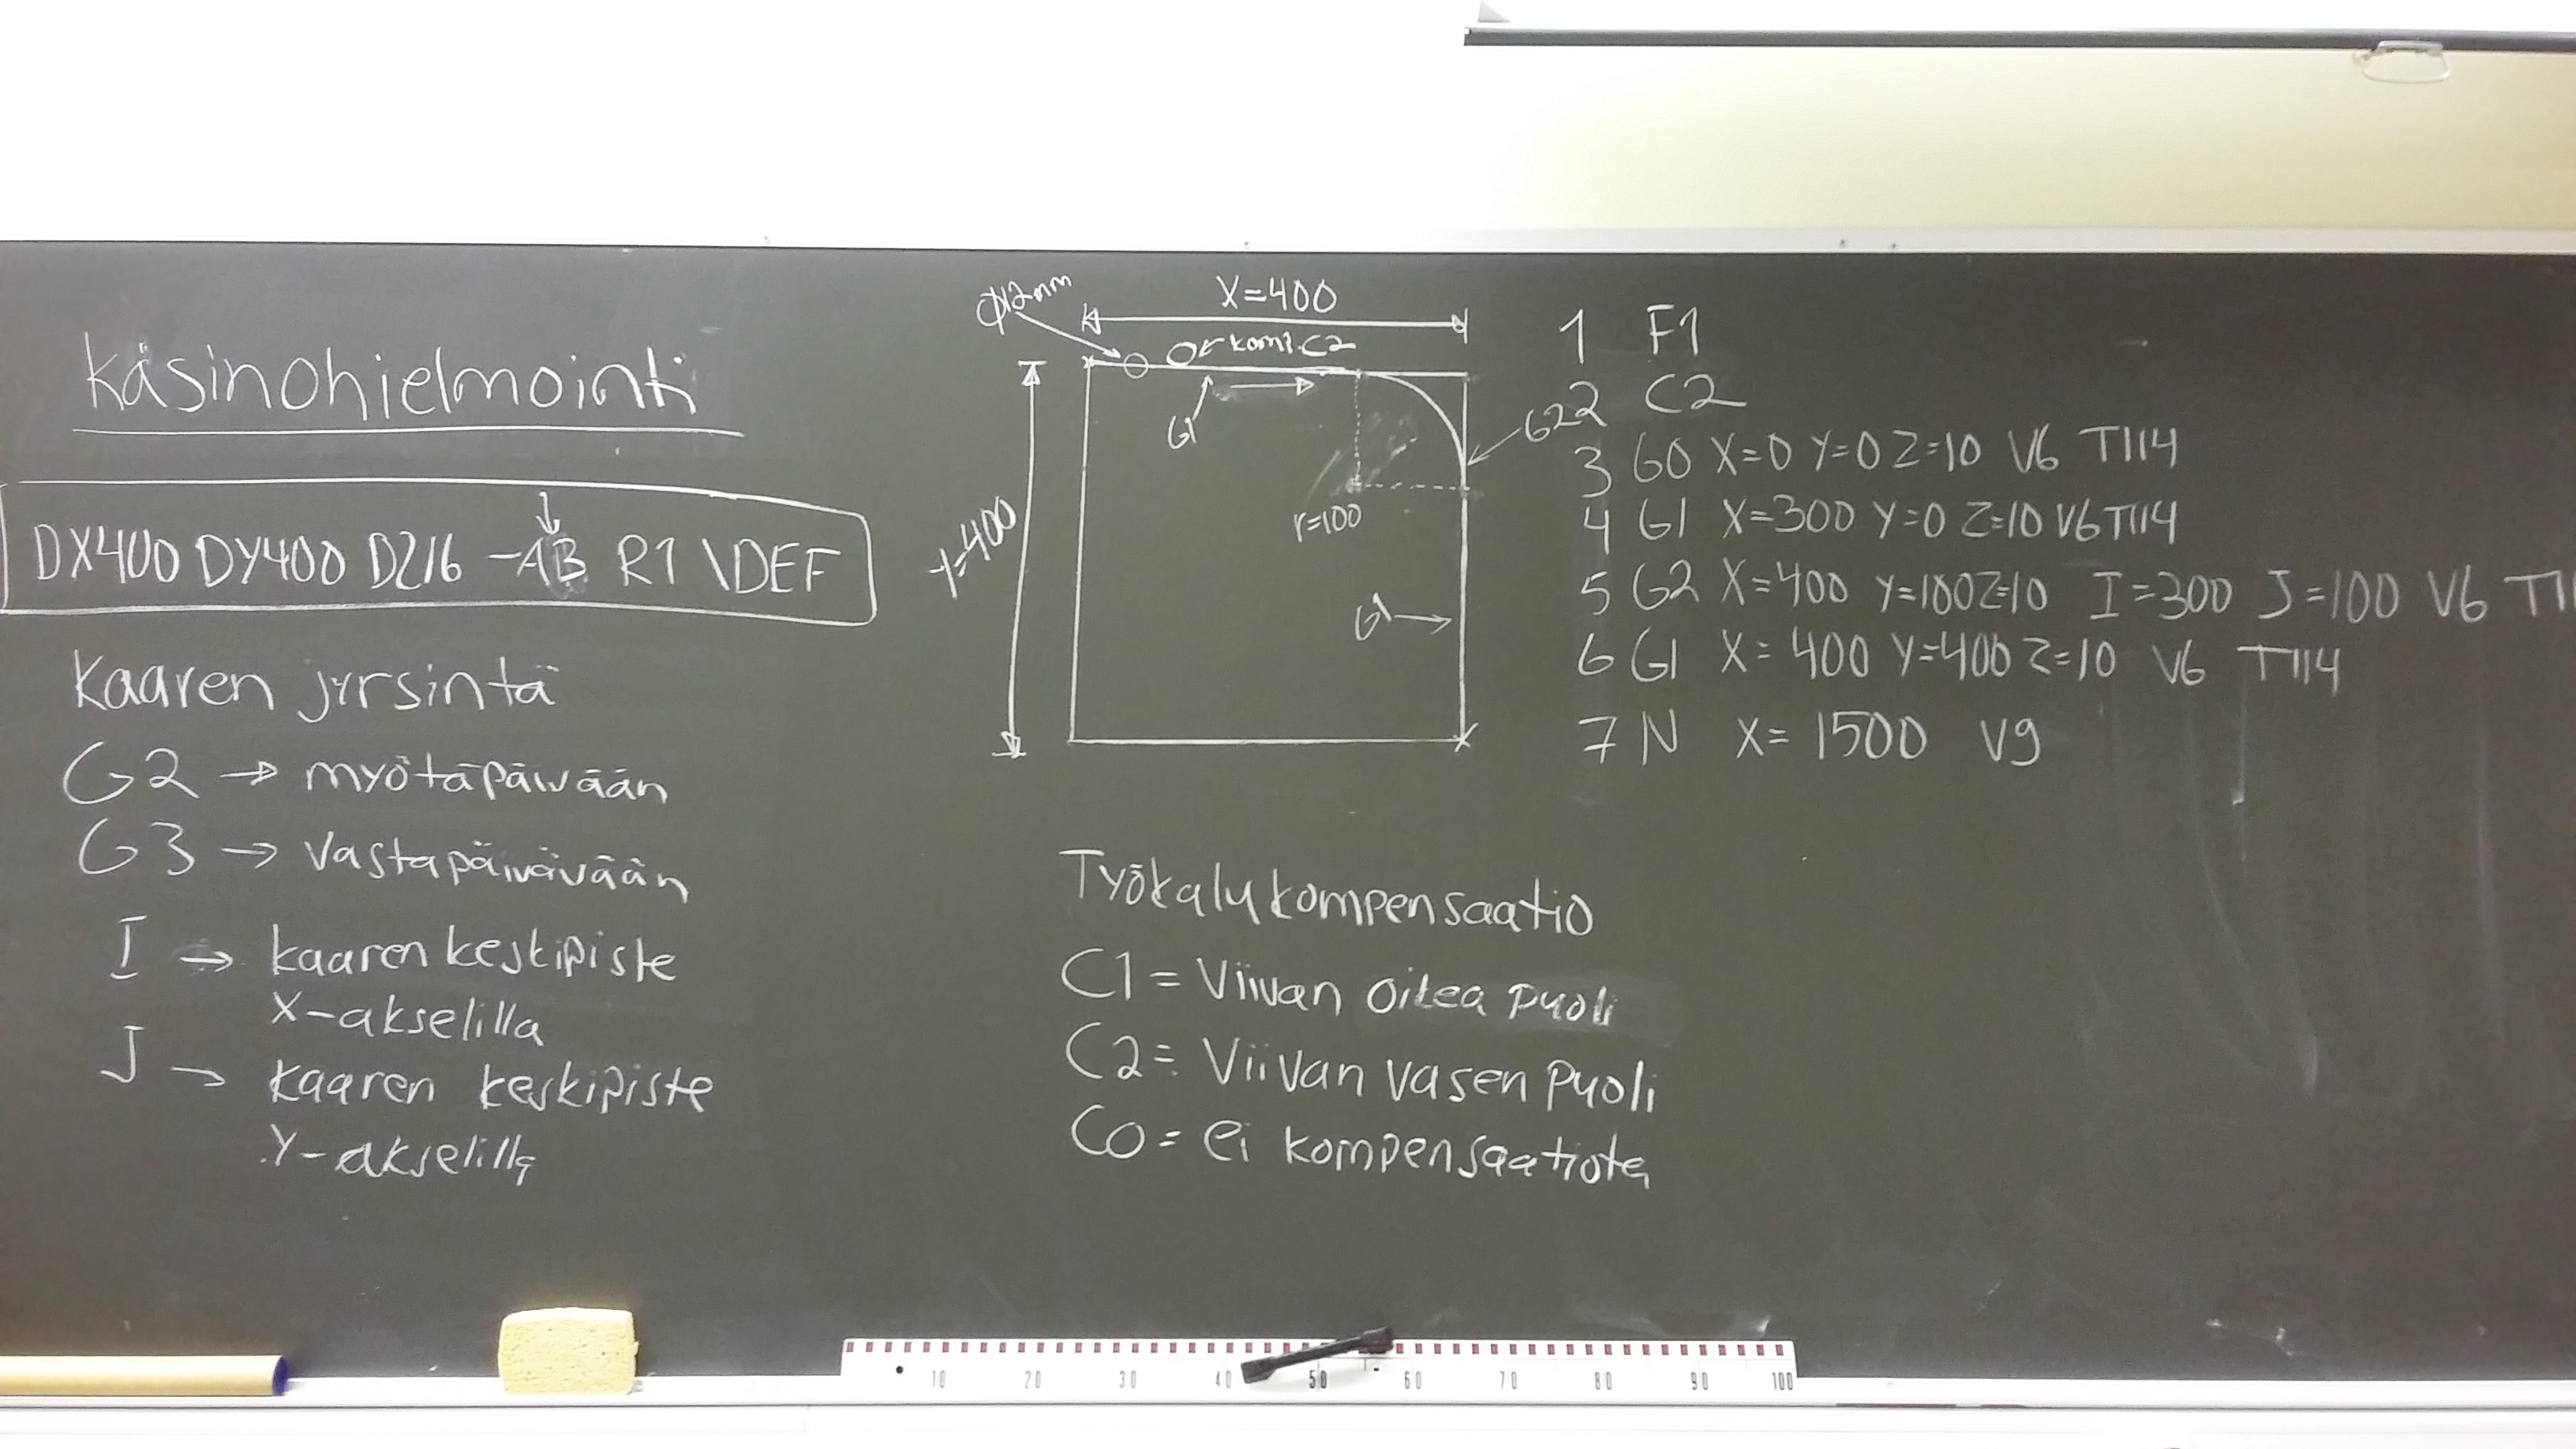 Käsinohjelmointi
DX400 DY400 DZ16 -AB R1 \DEF
Kaaren jyrsintä
G2 → myötäpäivään
G3 → Vastapäivävään
I → kaaren keskipiste
X-akselilla
J → kaaren keskipiste
Y-akselilla
φ12mm
X=400
komp. C2
G1
G2
Y=400
r=100
G1
1 F1
2 C2
3 G0 X=0 Y=0 Z=10 V6 T114
4 G1 X=300 Y=0 Z=10 V6 T114
5 G2 X=400 Y=100 Z=10 I=300 J=100 V6 T11
6 G1 X=400 Y=400 Z=10 V6 T114
7 N X=1500 V9
Työkalukompensaatio
C1 = Viivan oikea puoli
C2 = Viivan vasen puoli
C0 = ei kompensaatiota
10 20 30 40 50 60 70 80 90 100